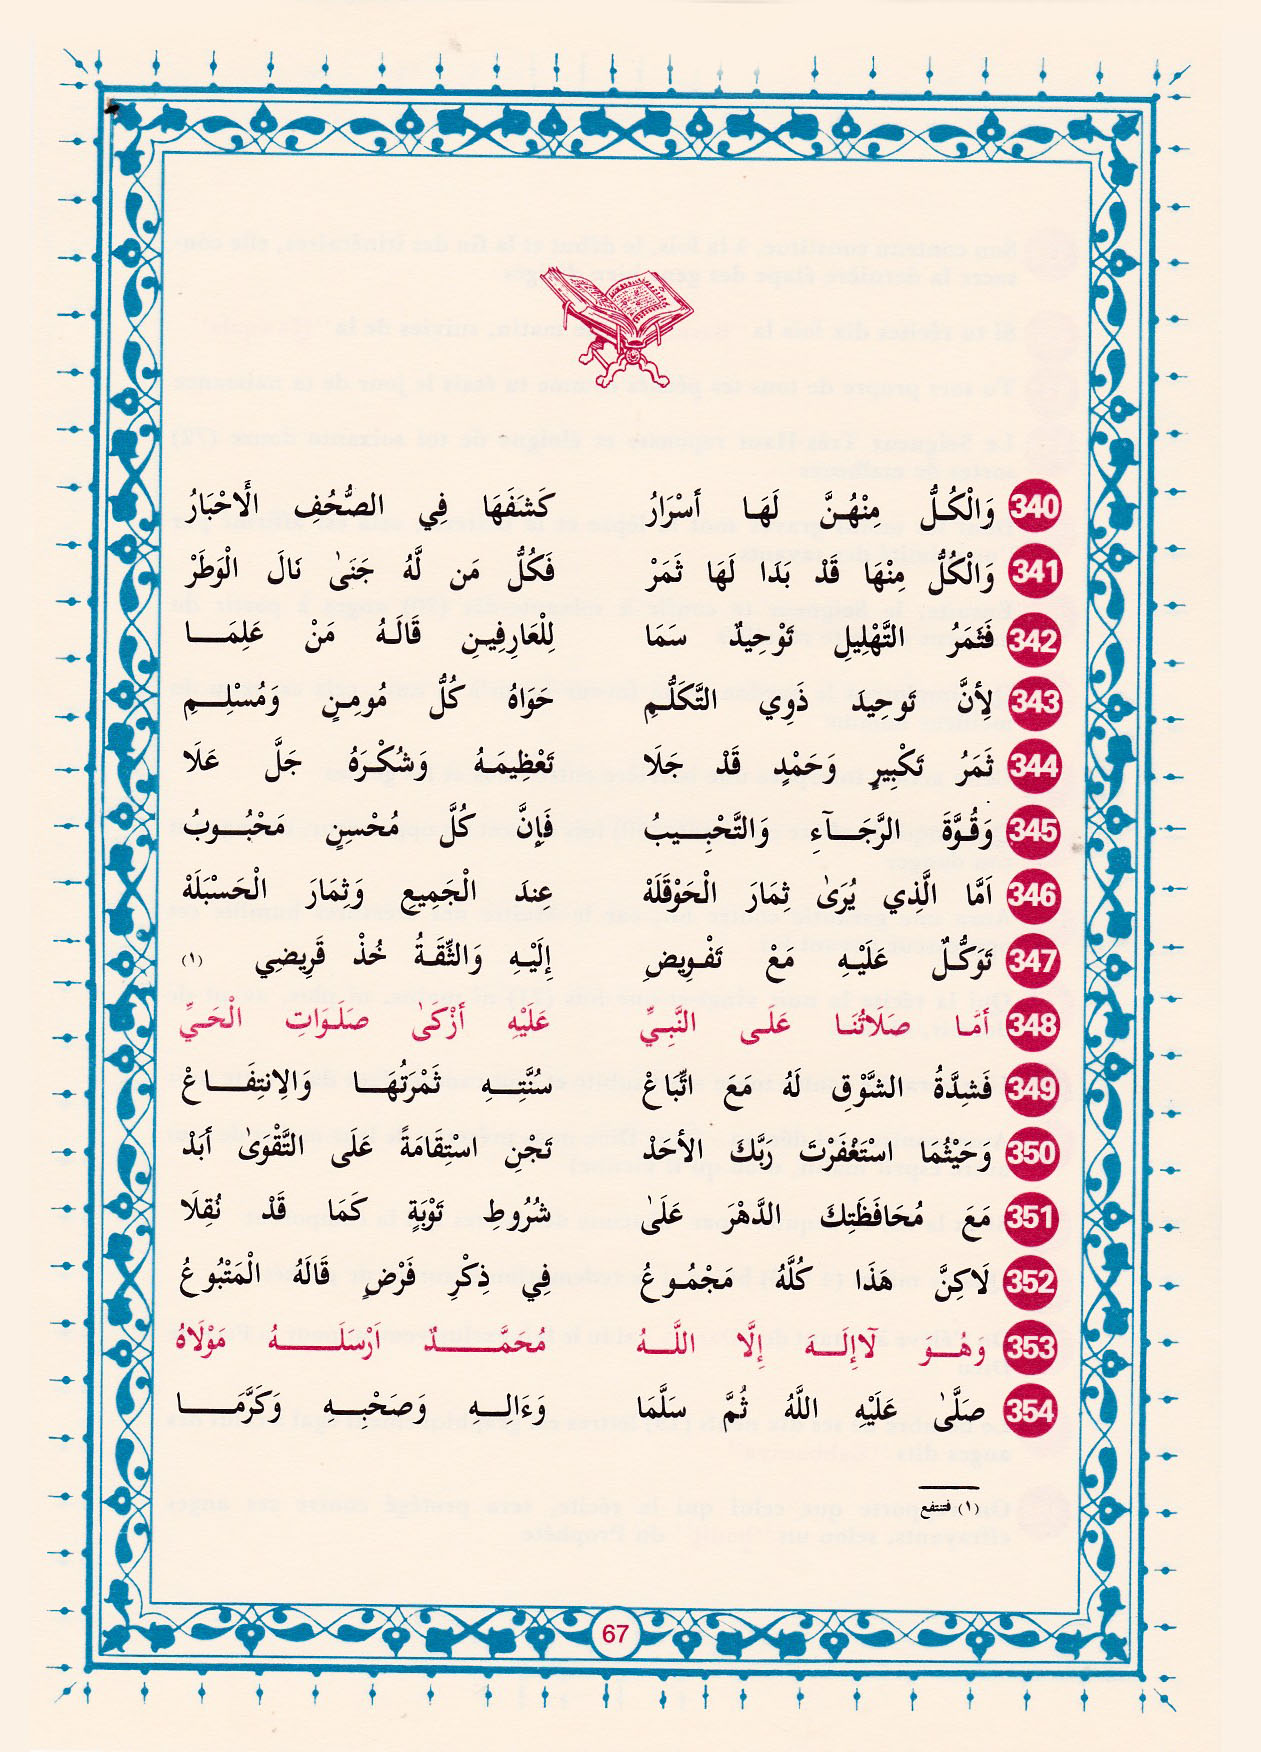 340 وَالْكُـلُّ مِنْهُـنَّ لَهَـا أَسْرَارُ كَشَفَهَا فِي الصُّحُفِ الَاحْبَارُ
341 وَالْكُلُّ مِنْهَا قَدْ بَدَا لَهَا ثَمَرْ فَكُلُّ مَن لَّهُ جَنَىٰ نَالَ الْوَطَرْ
342 فَثَمَرُ التَّهْلِيلِ تَوْحِيدٌ سَمَا لِلْعَارِفِيـنِ قَالَـهُ مَنْ عَلِمَـا
343 لِأنَّ تَوحِيدَ ذَوِي التَّكَلُّـمِ حَوَاهُ كُلُّ مُومِـنٍ وَمُسْلِـمِ
344 ثَمَرُ تَكْبِيرٍ وَحَمْدٍ قَدْ جَلَا تَعْظِيمَـهُ وَشُكْـرَهُ جَلَّ عَلَا
345 وَقُوَّةَ الرَّجَـآءِ وَالتَّحْبِـيبُ فَإِنَّ كُلَّ مُحْسِنٍ مَحْبُـوبُ
346 اَمَّا الَّذِي يُرَىٰ ثِمَارَ الْحَوْقَلَهْ عِندَ الْجَمِيعِ وَثِمَارَ الْحَسْبَلَهْ
347 تَوَكُّـلٌ عَلَيْـهِ مَعْ تَفْـوِيضِ إِلَيْـهِ وَالثِّقَـةُ خُذْ قَرِيضِي (١)
348 أمَّـا صَلَاتُنَـا عَلَـى النَّبِـيِّ عَلَيْهِ أزْكَىٰ صَلَـوَاتِ الْحَـيِّ
349 فَشِدَّةُ الشَّوْقِ لَهُ مَعَ اتِّبَاعْ سُنَّتِـهِ ثَمْرَتُهَـا وَالِانتِفَـاعْ
350 وَحَيْثُمَا اسْتَغْفَرْتَ رَبَّكَ الأحَدْ تَجْنِ اسْتِقَامَةً عَلَى التَّقْوَىٰ أبَدْ
351 مَعَ مُحَافَظَتِكَ الدَّهْرَ عَلَىٰ شُرُوطِ تَوْبَةٍ كَمَا قَدْ نُقِلَا
352 لَاكِنَّ هَذَا كُلَّهُ مَجْمُـوعُ فِي ذِكْرِ فَرْضٍ قَالَهُ الْمَتْبُوعُ
353 وَهُـوَ لَآإِلَـهَ إِلَّا اللَّـهُ مُحَمَّـدٌ اَرْسَلَـهُ مَوْلَاهُ
354 صَلَّىٰ عَلَيْهِ اللَّهُ ثُمَّ سَلَّمَا وَءَالِـهِ وَصَحْبِـهِ وَكَرَّمَـا
(١) فتنتفع
67